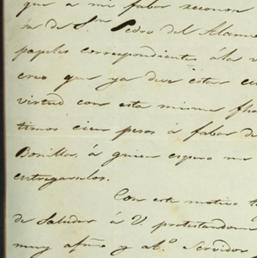 que a mi fabor reconoce
ia de S.ⁿ Pedro del Alamo
papeles correspondientes á la v
creo que ya deve estar en
virtud con esta misma fha
timos cien pesos á fabor de
Bonilla, á quien espero me
entregarselos.
Con este motivo t
de Saludar á V. protestandom
muy afmo y at.º Servidor